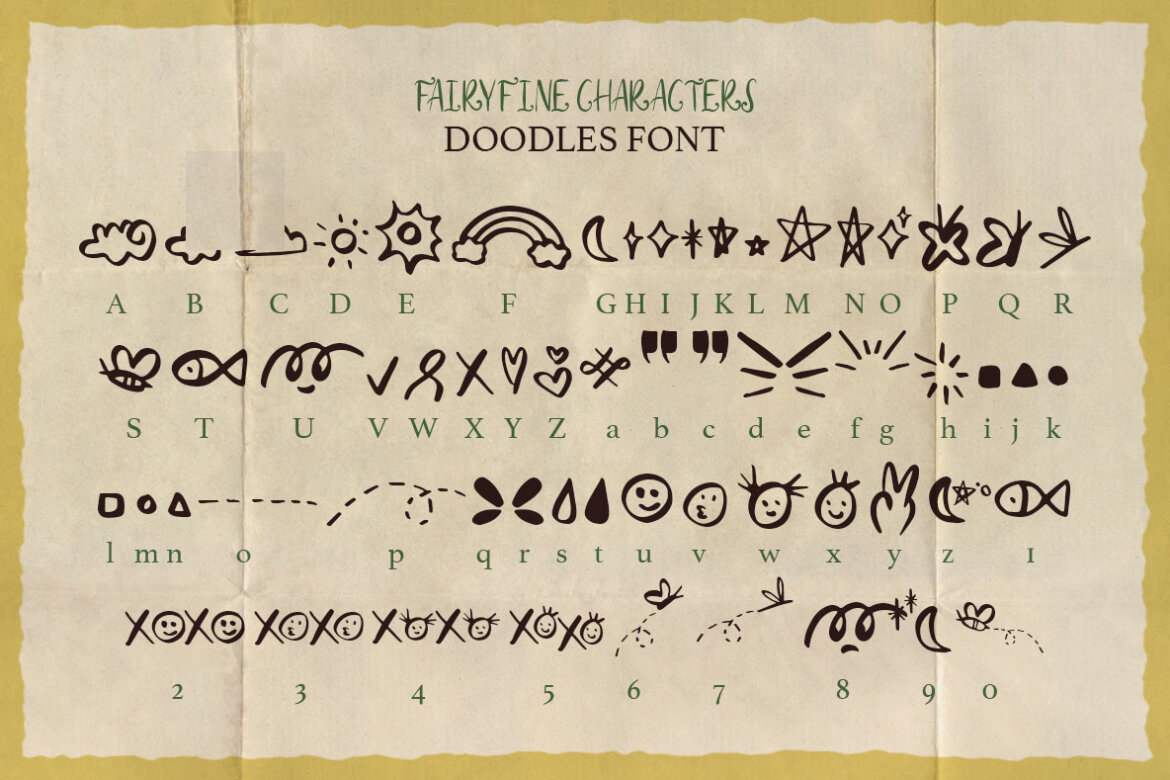 FAIRYFINE CHARACTERS
DOODLES FONT
A B C D E F G H I J K L M N O P Q R
S T U V W X Y Z a b c d e f g h i j k
l m n o p q r s t u v w x y z 1
2 3 4 5 6 7 8 9 0